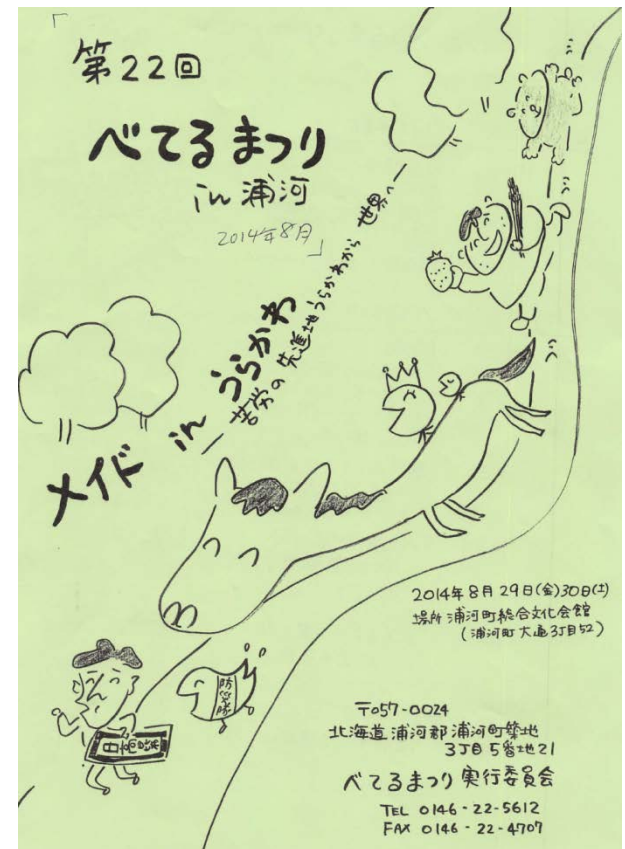 「
第22回
べてるまつり
in 浦河
2014年8月
」
メイド in うらかわ
―苦労の先進地うらかわから 世界へ―
防災隊
2014年8月29日(金)30日(土)
場所 浦河町総合文化会館
(浦河町大通3丁目52)
〒057-0024
北海道浦河郡浦河町築地
3丁目5番地21
べてるまつり実行委員会
TEL 0146-22-5612
FAX 0146-22-4707